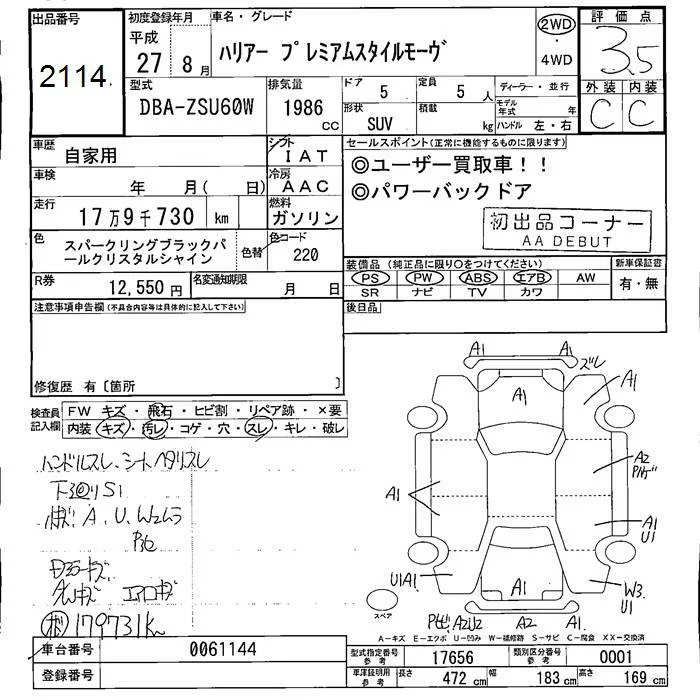 出品番号
2114
初度登録年月
平成
27 8月
車名・グレード
ハリアー プレミアムスタイルモーヴ
2WD
・
4WD
評価点
3.5
外装 内装
C C
型式
DBA-ZSU60W
排気量
1986
CC
ドア
5
定員
5 人
形状
SUV
積載
kg
ディーラー・並行
モデル年式 年
ハンドル 左・右
車歴
自家用
シフト
IAT
車検
年 月( 日)
冷房
AAC
走行
17万9千730 km
燃料
ガソリン
色
スパークリングブラックパ
ールクリスタルシャイン
色替
色コード
220
R券
12,550円
名変通知期限
月 日
セールスポイント(正常に機能するものに限ります)
◎ユーザー買取車!!
◎パワーバックドア
初出品コーナー
AA DEBUT
装備品 (純正品に限り○をつけてください)
PS PW ABS エアB AW
SR ナビ TV カワ
新車保証書
有・無
後日品
注意事項申告欄(不具合内容等は具体的に記入して下さい)
修復歴 有〔箇所 〕
検査員
記入欄
FW キズ・飛石・ヒビ割・リペア跡・×要
内装 キズ・汚レ・コゲ・穴・スレ・キレ・破レ
ハンドルスレ、シートヘタリスレ
下廻りS1
A、U、W2ムラ
エアロキズ
179731km
A1 A1
ズレ
A1
A1
A2
A1
A1
U1
U1A1
A1
W3
U1
スペア
A2U2 A2 A1
A-キズ E-エクボ U-凹み W-補修跡 S-サビ C-腐食 XX-交換済
車台番号
0061144
登録番号
型式指定番号
参考
17656
類別区分番号
参考
0001
車庫証明用
参考
長さ 472 cm 幅 183 cm 高さ 169 cm